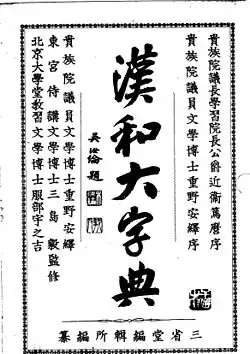 貴族院議長學習院長公爵近衞篤麿序
貴族院議員文學博士重野安繹序
漢和大字典
吳汝綸題
貴族院議員文學博士重野安繹
東宮侍講文學博士三島毅監修
北京大學堂教習文學博士服部宇之吉
三省堂編輯所編纂